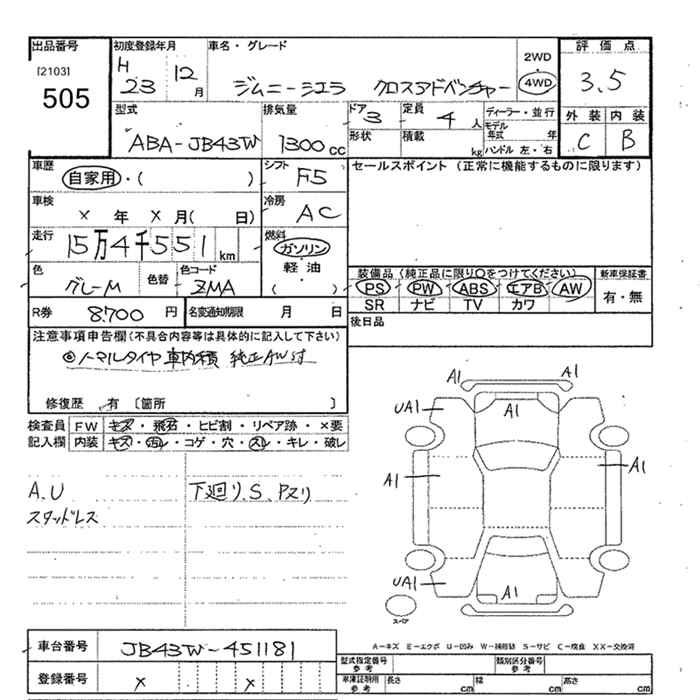 出品番号 初度登録年月 車名・グレード 評価点
[2103] H 23 12月 ジムニーシエラ クロスアドベンチャー 2WD 4WD 3.5
505
型式 排気量 ドア 3 定員 4人 ディーラー・並行 外装 内装
ABA-JB43W 1300cc 形状 積載 kg モデル年式 年 C B
ハンドル 左・右
車歴 自家用・( ) シフト F5 セールスポイント (正常に機能するものに限ります)
車検 X年 X月( 日) 冷房 AC
走行 15万4千551km 燃料 ガソリン
軽油
( )
色 グレーM 色替 色コード ZMA
装備品 (純正品に限り○をつけてください) 新車保証書
PS PW ABS エアB AW 有・無
SR ナビ TV カワ
R券 8,700円 名変通知期限 月 日 後日品
注意事項申告欄(不具合内容等は具体的に記入して下さい)
◎ノーマルタイヤ車内積 純正AW付
修復歴 有 〔箇所 〕
検査員 FW キズ・飛石・ヒビ割・リペア跡・×要
記入欄 内装 キズ・汚レ・コゲ・穴・スレ・キレ・破レ
A.U 下廻り.S.Pスリ
スタッドレス
A1 A1
UA1 A1
A1 A1
UA1 A1
スペア
A-キズ E-エクボ U-凹み W-補修跡 S-サビ C-腐食 XX-交換済
車台番号 JB43W-451181
登録番号 X X
型式指定番号 参考 類別区分番号 参考
車庫証明用 参考 長さ cm 幅 cm 高さ cm